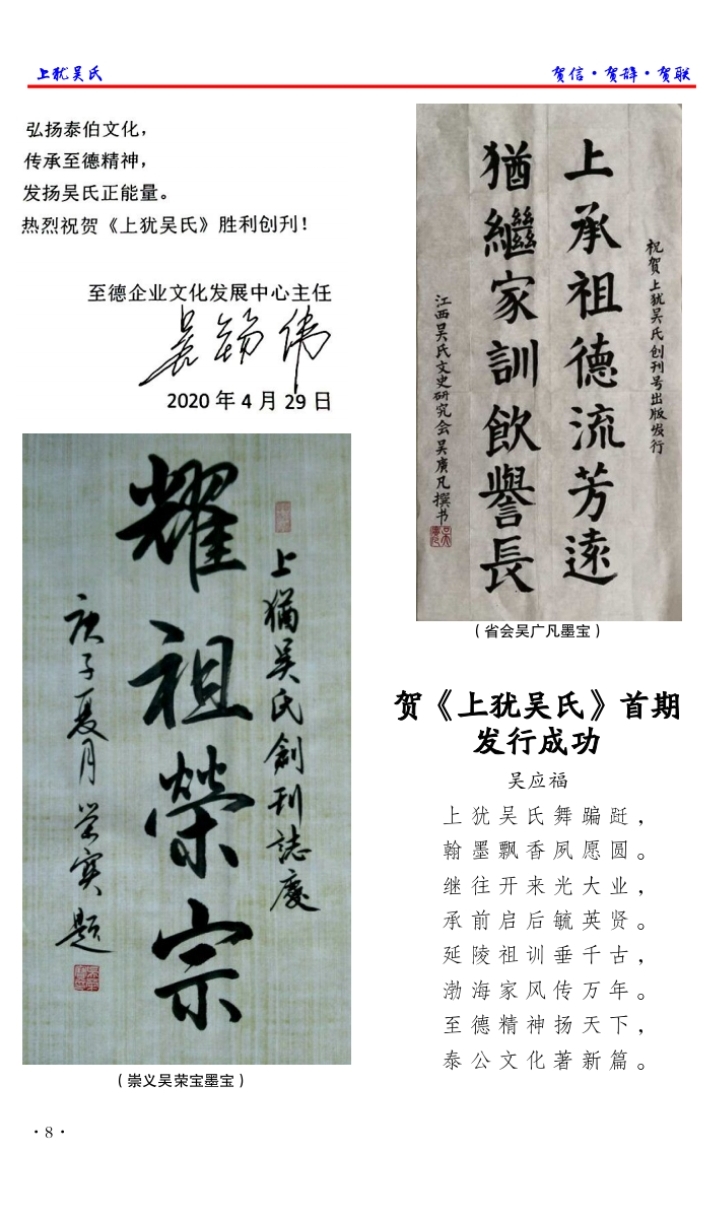 上犹吴氏
贺信·贺辞·贺联
弘扬泰伯文化，
传承至德精神，
发扬吴氏正能量。
热烈祝贺《上犹吴氏》胜利创刊！
至德企业文化发展中心主任
2020 年 4 月 29 日
上猶吴氏創刊誌慶
耀祖榮宗
庚子夏月 荣宝题
（崇义吴荣宝墨宝）
祝賀上猶吴氏创刊号出版发行
上承祖德流芳遠
猶繼家訓飲譽長
江西吴氏文史研究会吴廣凡撰书
（省会吴广凡墨宝）
贺《上犹吴氏》首期
发行成功
吴应福
上犹吴氏舞蹁跹，
翰墨飘香夙愿圆。
继往开来光大业，
承前启后毓英贤。
延陵祖训垂千古，
渤海家风传万年。
至德精神扬天下，
泰公文化著新篇。
·8·